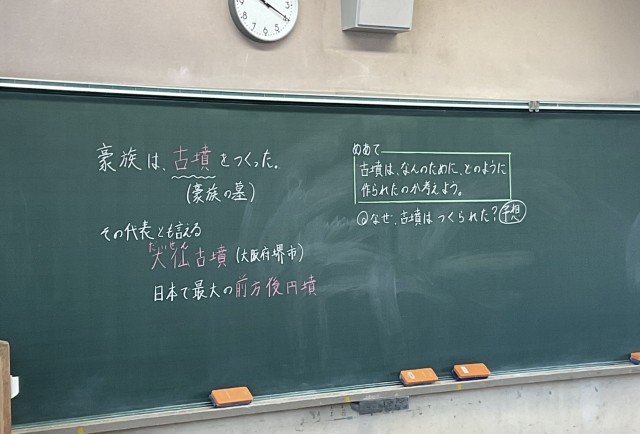 豪族は、古墳をつくった。
(豪族の墓)
その代表とも言える
だいせん
大仙古墳(大阪府堺市)
日本で最大の前方後円墳
めあて
古墳は、なんのために、どのように
作られたのか考えよう。
Qなぜ、古墳はつくられた?予想